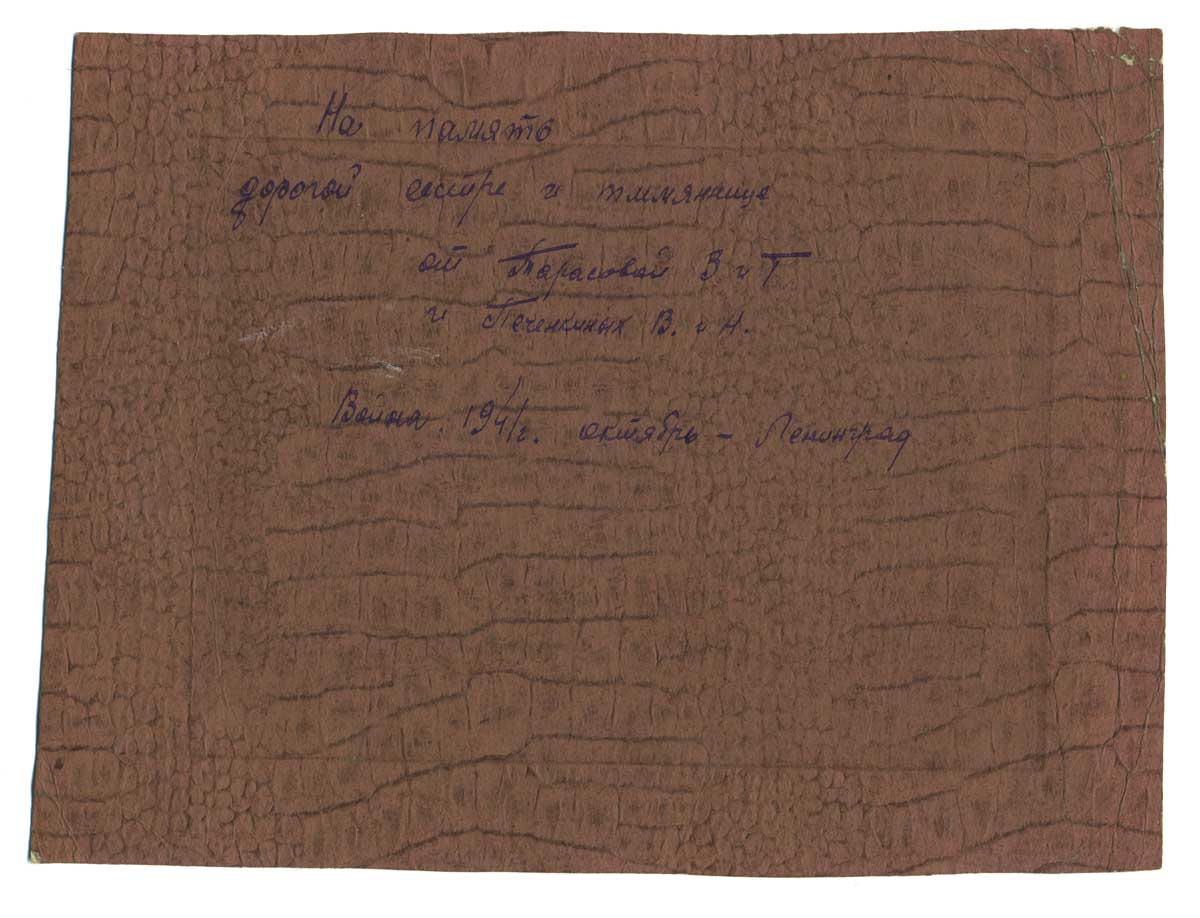 На память
дорогой сестре и тлмяннице
от Тарасовой В и Т
и Печенкиных В. и Н.
Война. 1941 г. октябрь - Ленинград